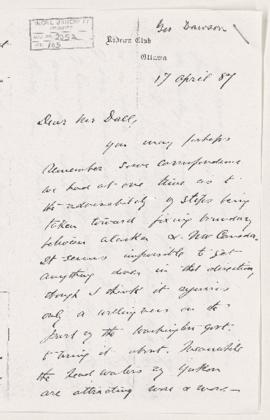 Geo Dawson
2252
165
Rideau Club
Ottawa
17 April 87
Dear Mr Dall,
you may perhaps
remember some correspondence
we had at one time as to
the advisability of steps being
taken toward fixing boundary
between Alaska & NW Canada.
It seems impossible to get
anything done in that direction,
though I think it requires
only a willingness on the
part of the Washington Govt
to bring it about. Meanwhile
the head waters of Yukon
are attracting more & more